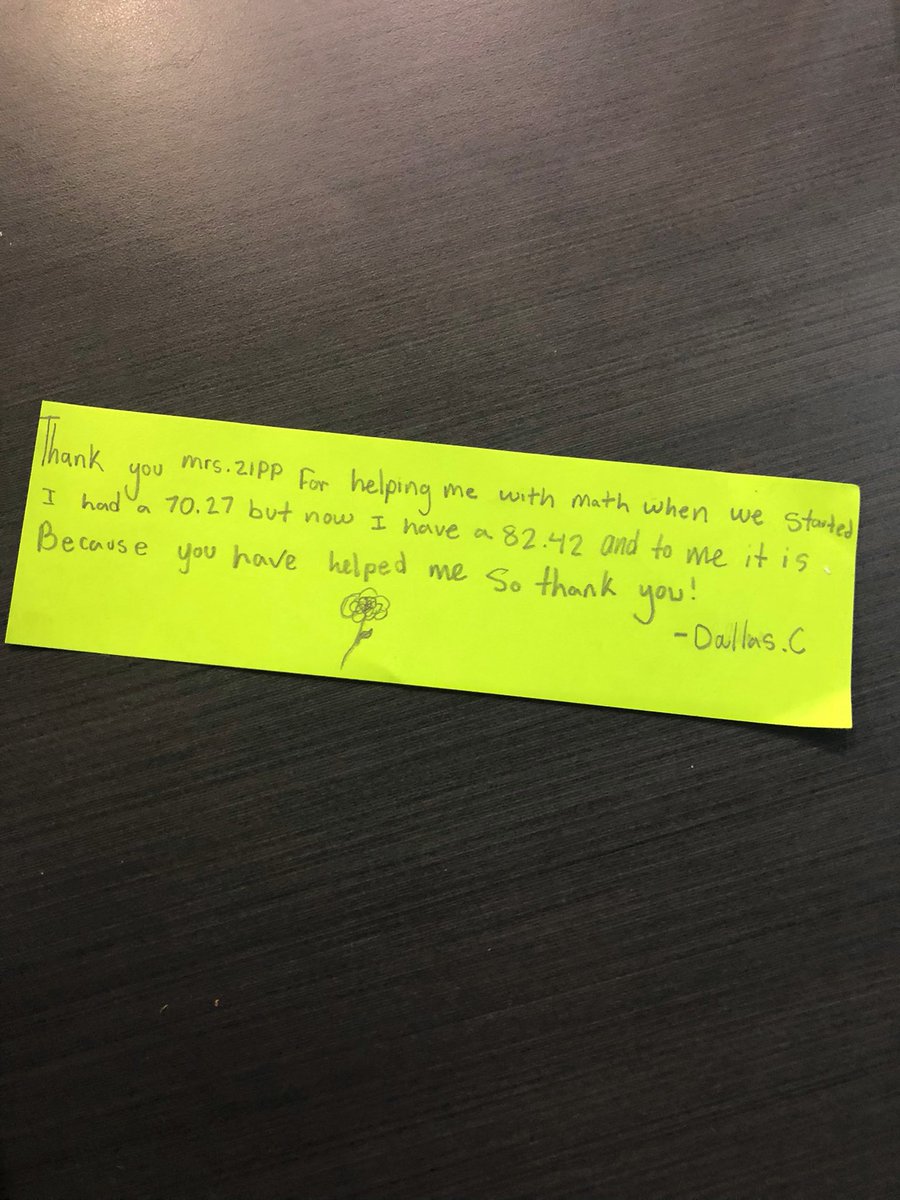 Thank you mrs.zipp For helping me with math when we started
I had a 70.27 but now I have a 82.42 and to me it is
Because you have helped me So thank you!
-Dallas.C